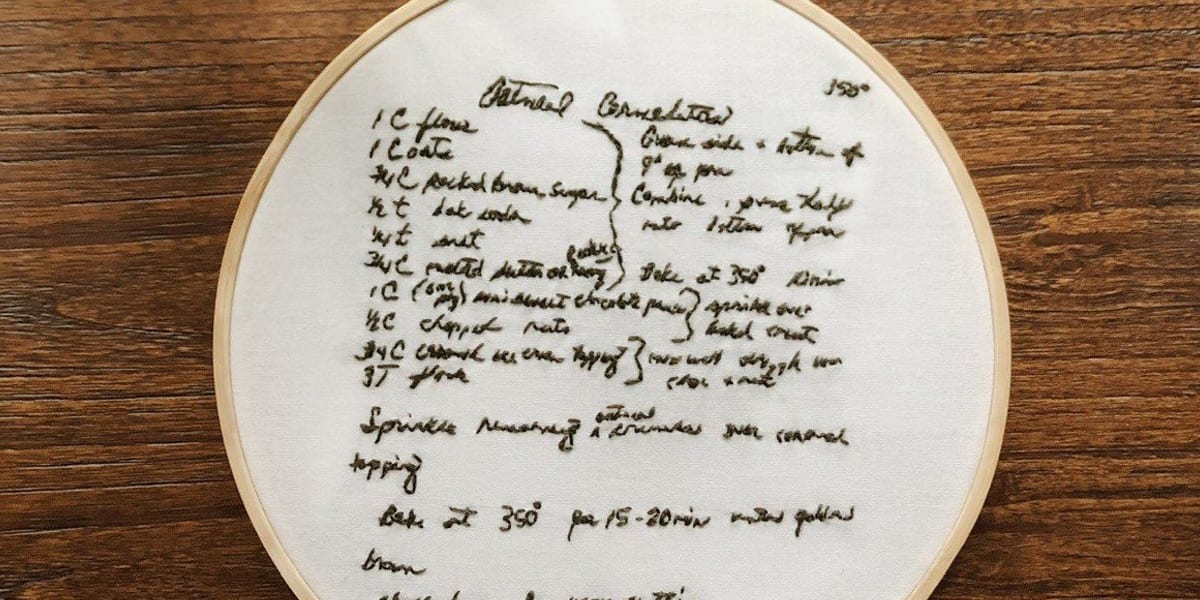 Oatmeal Carmelitas 350°
1 C flour
Grease side + bottom of
1 C oats
9" sq pan
3/4 C packed brown sugar
Combine, press half
1/2 t bak soda
into bottom of pan
1/4 t salt
3/4 C melted butter or
Bake at 350° 10 min
1 C (6 oz pkg) semi sweet chocolate pieces
sprinkle over
1/2 C chopped nuts
baked crust
3/4 C caramel ice cream topping
mix well drizzle over
3 T flour
choc + nuts
Sprinkle remaining oatmeal crumbs over caramel
topping
Bake at 350° for 15-20 min until golden
brown